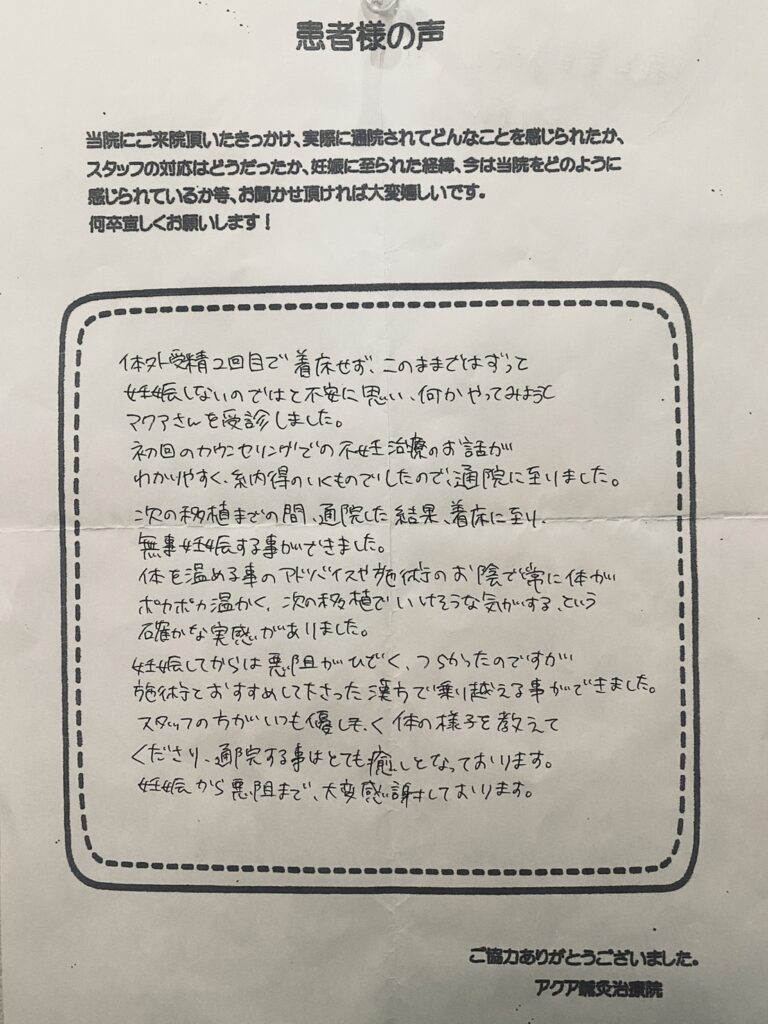 患者様の声
当院にご来院頂いたきっかけ、実際に通院されてどんなことを感じられたか、
スタッフの対応はどうだったか、妊娠に至られた経緯、今は当院をどのように
感じられているか等、お聞かせ頂ければ大変嬉しいです。
何卒宜しくお願いします！
体外受精2回目で着床せず、このままではずっと
妊娠しないのではと不安に思い、何かやってみようと
アクアさんを受診しました。
初回のカウンセリングでの不妊治療のお話が
わかりやすく、納得のいくものでしたので、通院に至りました。
次の移植までの間、通院した結果、着床に至り、
無事妊娠する事ができました。
体を温める事のアドバイスや施術のお陰で常に体が
ポカポカ温かく、次の移植でいけそうな気がする、という
確かな実感がありました。
妊娠してからは悪阻がひどく、つらかったのですが
施術とおすすめして下さった漢方で乗り越える事ができました。
スタッフの方がいつも優しく体の様子を教えて
くださり、通院する事はとても癒しとなっております。
妊娠から悪阻まで、大変感謝しております。
ご協力ありがとうございました。
アクア鍼灸治療院